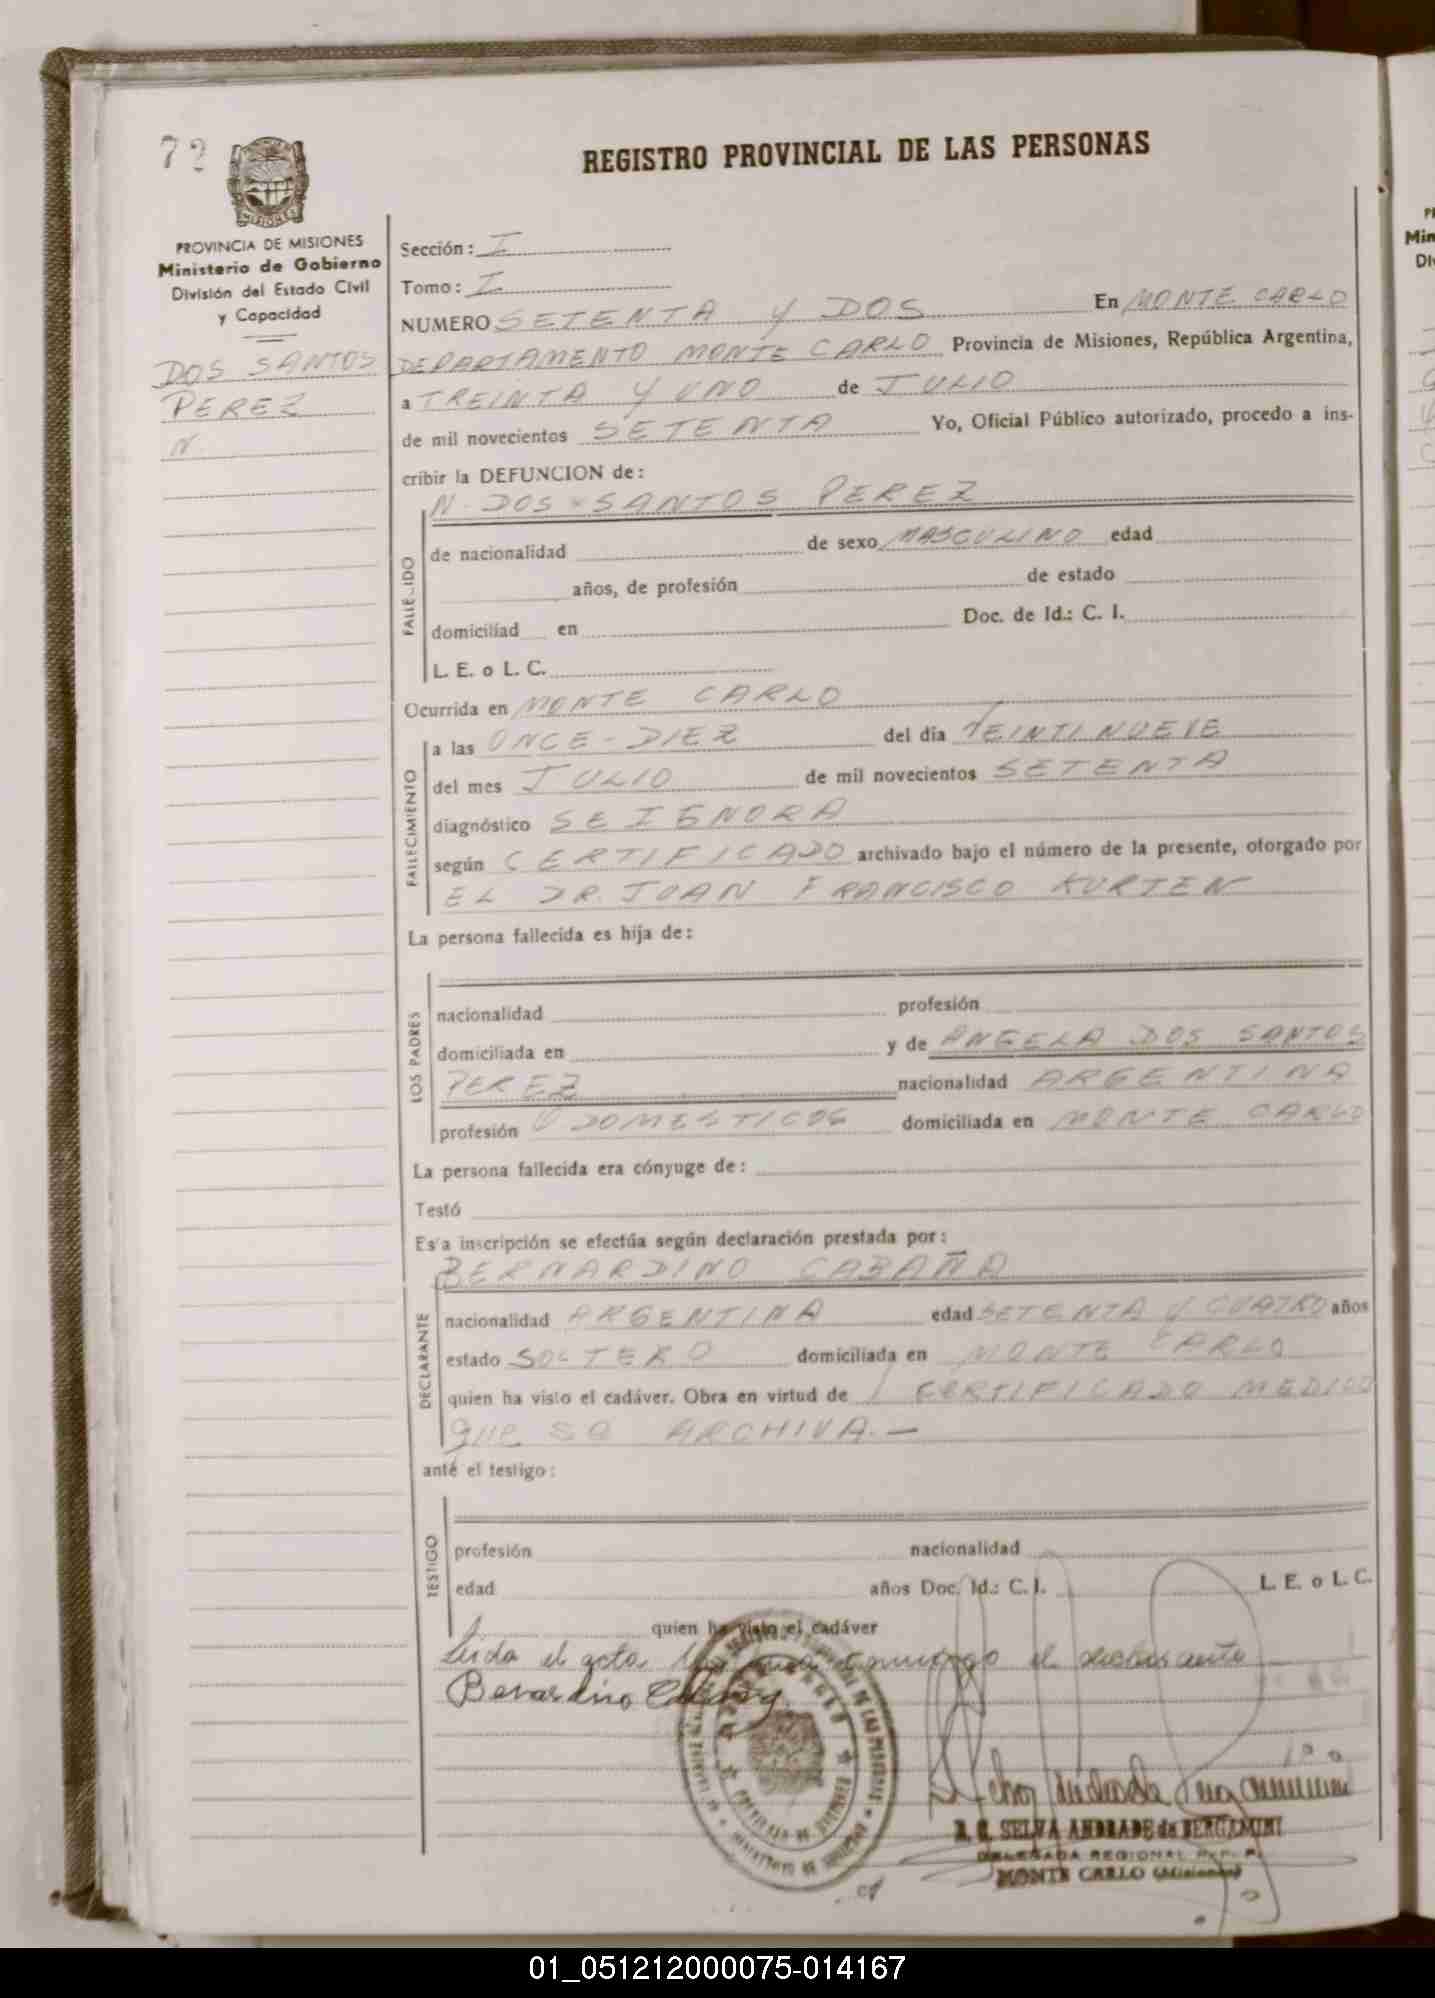 72
REGISTRO PROVINCIAL DE LAS PERSONAS
MISIONES
PROVINCIA DE MISIONES
Ministerio de Gobierno
División del Estado Civil
y Capacidad
DOS SANTOS
PEREZ
N.
Sección: I
Tomo: I
NUMERO SETENTA Y DOS En MONTE CARLO
DEPARTAMENTO MONTE CARLO Provincia de Misiones, República Argentina,
a TREINTA Y UNO de JULIO
de mil novecientos SETENTA Yo, Oficial Público autorizado, procedo a ins-
cribir la DEFUNCION de:
N. DOS SANTOS PEREZ
FALLECIDO
de nacionalidad de sexo MASCULINO edad
años, de profesión de estado
domiciliad en Doc. de Id.: C. I.
L. E. o L. C.
Ocurrida en MONTE CARLO
FALLECIMIENTO
a las ONCE-DIEZ del día VEINTINUEVE
del mes JULIO de mil novecientos SETENTA
diagnóstico SE IGNORA
según CERTIFICADO archivado bajo el número de la presente, otorgado por
EL DR. JUAN FRANCISCO KURTEN
La persona fallecida es hija de:
LOS PADRES
nacionalidad profesión
domiciliada en y de ANGELA DOS SANTOS
PEREZ nacionalidad ARGENTINA
profesión DOMESTICOS domiciliada en MONTE CARLO
La persona fallecida era cónyuge de:
Testó
Esta inscripción se efectúa según declaración prestada por:
BERNARDINO CABAÑA
DECLARANTE
nacionalidad ARGENTINA edad SETENTA Y CUATRO años
estado SOLTERO domiciliada en MONTE CARLO
quien ha visto el cadáver. Obra en virtud de CERTIFICADO MEDICO
QUE SE ARCHIVA.-
anté el testigo:
TESTIGO
profesión nacionalidad
edad años Doc. Id.: C. I. L. E. o L. C.
quien ha visto el cadáver
Leida el acta, la firma conmigo el declarante
Bernardino
SELVA ANDRADE de BERGAMINI
DELEGADA REGIONAL R.P.P.
MONTE CARLO (Misiones)
01_051212000075-014167